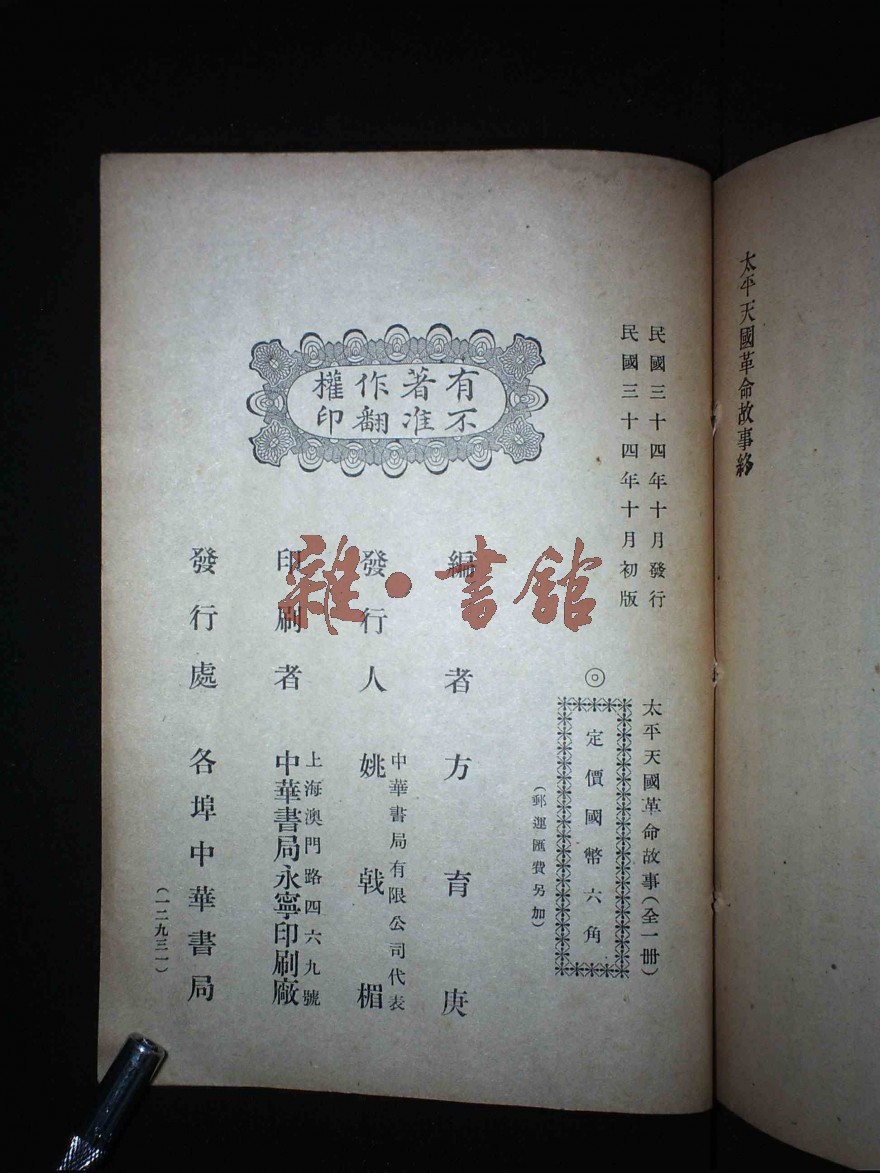 太平天國革命故事終
民國三十四年十月發行
民國三十四年十月初版
太平天國革命故事(全一冊)
◎定價國幣六角
(郵運匯費另加)
有著作權
不准翻印
編者方育庚
中華書局有限公司代表
發行人姚戟楣
上海澳門路四六九號
印刷者中華書局永寧印刷廠
發行處各埠中華書局
(一二九三一)
雜·書館